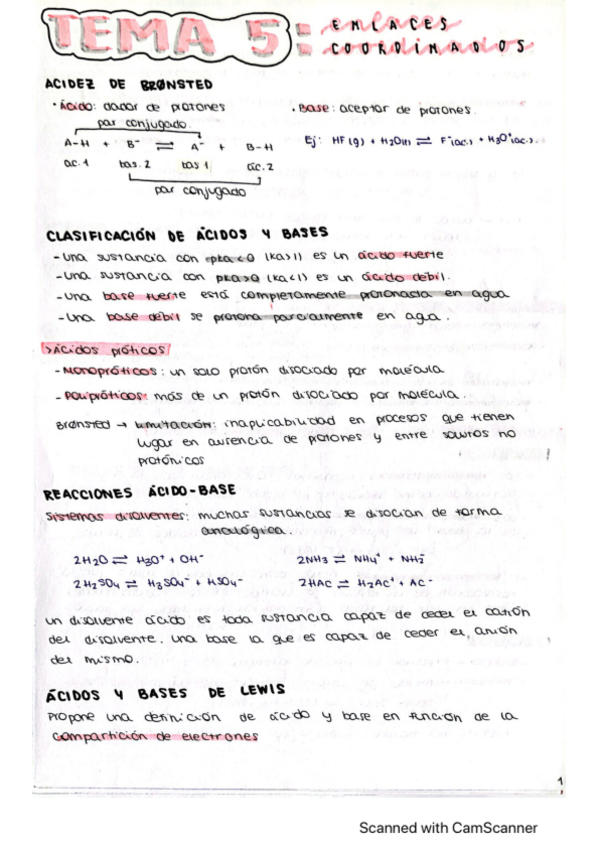 TEMA 5: ENLACES
COORDINADOS
ACIDEZ DE BRØNSTED
· Ácido: dador de protones · Base: aceptor de protones.
par conjugado.
A-H + B⁻ ⇌ A⁻ + B-H Ej: HF(g) + H2O(l) ⇌ F⁻(ac.) + H3O⁺(ac.).
ac.1 bas.2 bas1 ác.2
par conjugado
CLASIFICACIÓN DE ÁCIDOS Y BASES
- Una sustancia con pka<0 (ka>1) es un ácido fuerte
- Una sustancia con pka>0 (ka<1) es un ácido débil.
- Una base fuerte está completamente protonada en agua
- Una base débil se protona parcialmente en agua.
>Ácidos próticos
- Monopróticos: un solo protón disociado por molécula
- Polipróticos: más de un protón disociado por molécula.
Brønsted → Limitación: inaplicabilidad en procesos que tienen
lugar en ausencia de protones y entre solutos no
protónicos
REACCIONES ÁCIDO-BASE
Sistemas disolventes: muchas sustancias se disocian de forma
analógica.
2H2O ⇌ H3O⁺ + OH⁻ 2NH3 ⇌ NH4⁺ + NH2⁻
2H2SO4 ⇌ H3SO4⁺ + HSO4⁻ 2HAC ⇌ H2AC⁺ + AC⁻
Un disolvente ácido es toda sustancia capaz de ceder el catión
del disolvente. Una base la que es capaz de ceder el anión
del mismo.
ÁCIDOS Y BASES DE LEWIS
Propone una definición de ácido y base en función de la
compartición de electrones
1
Scanned with CamScanner